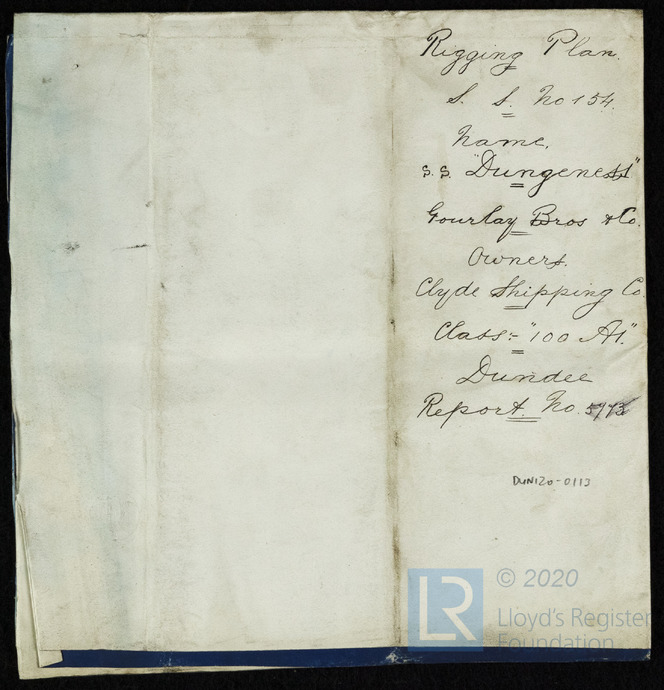 Rigging Plan.
S. S. No 154.
Name.
S.S. "Dungeness"
Gourlay Bros & Co.
Owners.
Clyde Shipping Co.
Class:- "100 A1."
Dundee
Report. No.
DUN120-0113
LR
© 2020
Lloyd's Register
Foundation